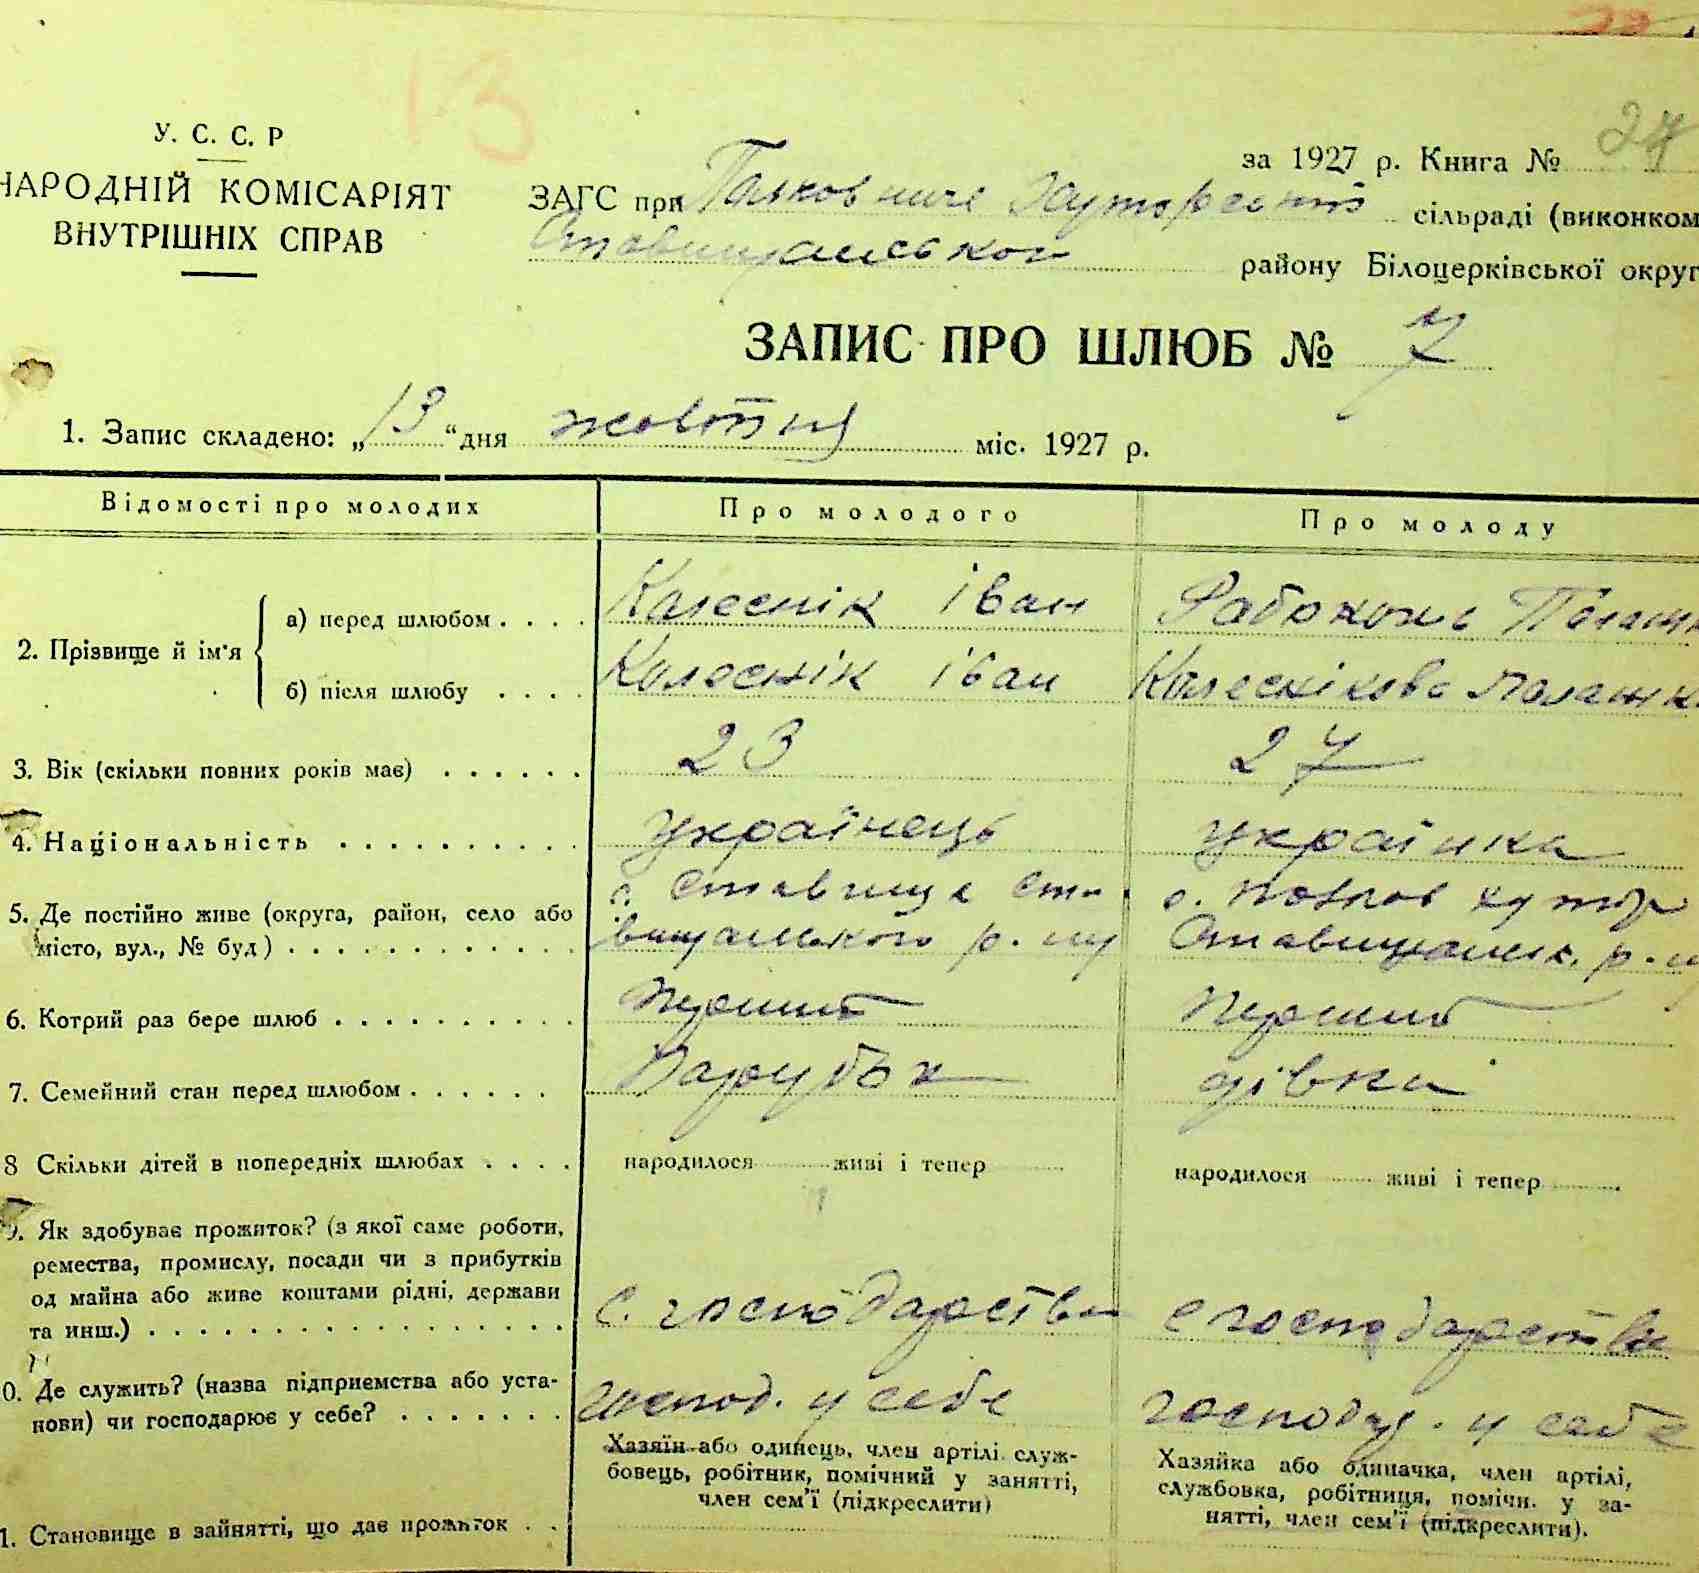 13
У. С. С. Р
НАРОДНІЙ КОМІСАРІЯТ
ВНУТРІШНІХ СПРАВ
за 1927 р. Книга №
ЗАГС при сільраді (виконком
Ставищанського району Білоцерківської округ
ЗАПИС ПРО ШЛЮБ № 7
1. Запис складено: „13“ дня жовтня міс. 1927 р.
Відомості про молодих Про молодого Про молоду
2. Прізвище й ім'я
а) перед шлюбом . . . . Колеснік Іван Рабоконь Палаж
б) після шлюбу . . . . Колеснік Іван Колеснікова Палажк
3. Вік (скільки повних років має) . . . . . . 23 27
4. Національність . . . . . . . . . . українець українка
5. Де постійно живе (округа, район, село або с. Ставище Ста с. хутор
місто, вул., № буд) . . . . . . . . . . . . вищанського р-ну Ставищанськ. р-н
6. Котрий раз бере шлюб . . . . . . . . . . перший перший
7. Семейний стан перед шлюбом . . . . . . Парубок дівка
8 Скільки дітей в попередніх шлюбах . . . . народилося живі і тепер народилося живі і тепер
9. Як здобуває прожиток? (з якої саме роботи,
ремества, промислу, посади чи з прибутків
од майна або живе коштами рідні, держави
та инш.) . . . . . . . . . . . . . . . . . с. господарства с господарства
0. Де служить? (назва підприємства або уста-
нови) чи господарює у себе? . . . . . . . господ. у себе господар. у себе
Хазяїн або одинець, член артілі, служ-
бовець, робітник, помічний у занятті,
член сем'ї (підкреслити)
Хазяйка або одиначка, член артілі,
службовка, робітниця, помічн. у за-
нятті, член сем'ї (підкреслити).
1. Становище в зайнятті, що дає прожиток . .